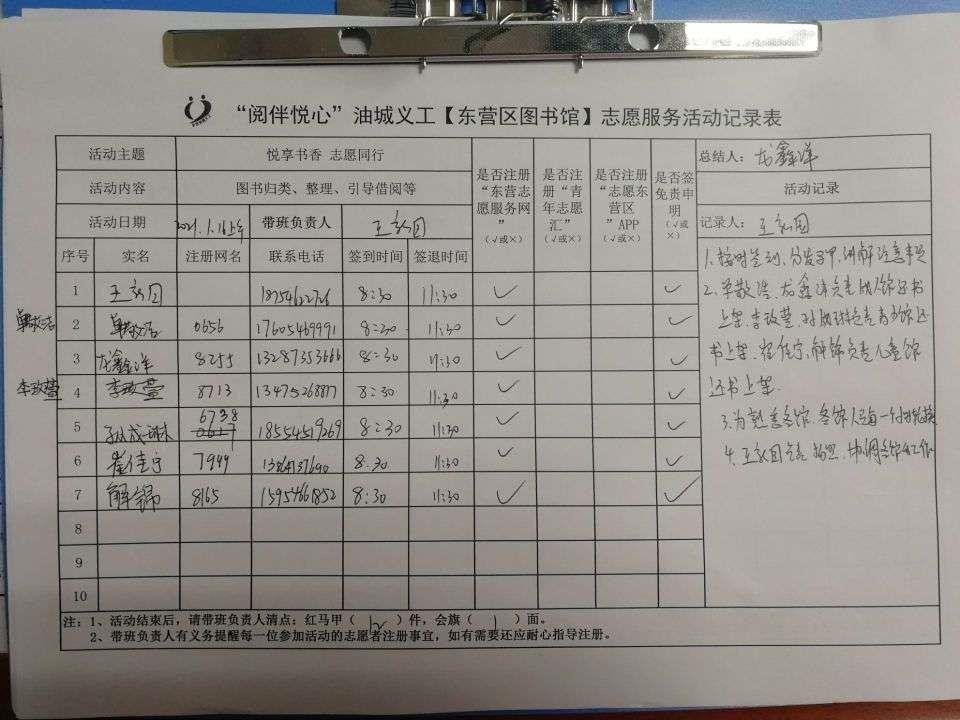 “阅伴悦心”油城义工【东营区图书馆】志愿服务活动记录表
活动主题 悦享书香 志愿同行
活动内容 图书归类、整理、引导借阅等
活动日期 2021.1.16上午 带班负责人
是否注册“东营志愿服务网”(√或×)
是否注册“青年志愿汇”(√或×)
是否注册“志愿东营区”APP(√或×)
是否签免责申明(√或×)
总结人：龙鑫洋
活动记录
记录人：
序号 实名 注册网名 联系电话 签到时间 签退时间
1 8:30 11:30 √ √
单敬浩 2 单敬浩 0656 17605469991 8:30 11:30 √ √
3 龙鑫洋 8255 13287353666 8:30 11:30 √ √
李玫萱 4 李玫萱 8713 13475268877 8:30 11:30 √ √
6738
5 孙成琳 0617 18554519269 8:30 11:30 √ √
6 崔佳宁 7949 8:30 11:30 √ √
7 解锦 8165 15954661852 8:30 11:30 √ √
8
9
10
1.按时签到、分发马甲,讲解注意事项
2.单敬浩、龙鑫洋负责成人馆还书
上架,李玫萱、孙成琳负责青少馆还
书上架.崔佳宁,解锦负责儿童馆
还书上架.
3.为熟悉各馆.各馆人每一小时轮换
4.负责拍照.协调各馆工作
注：1、活动结束后，请带班负责人清点：红马甲（12）件，会旗（1）面。
2、带班负责人有义务提醒每一位参加活动的志愿者注册事宜，如有需要还应耐心指导注册。